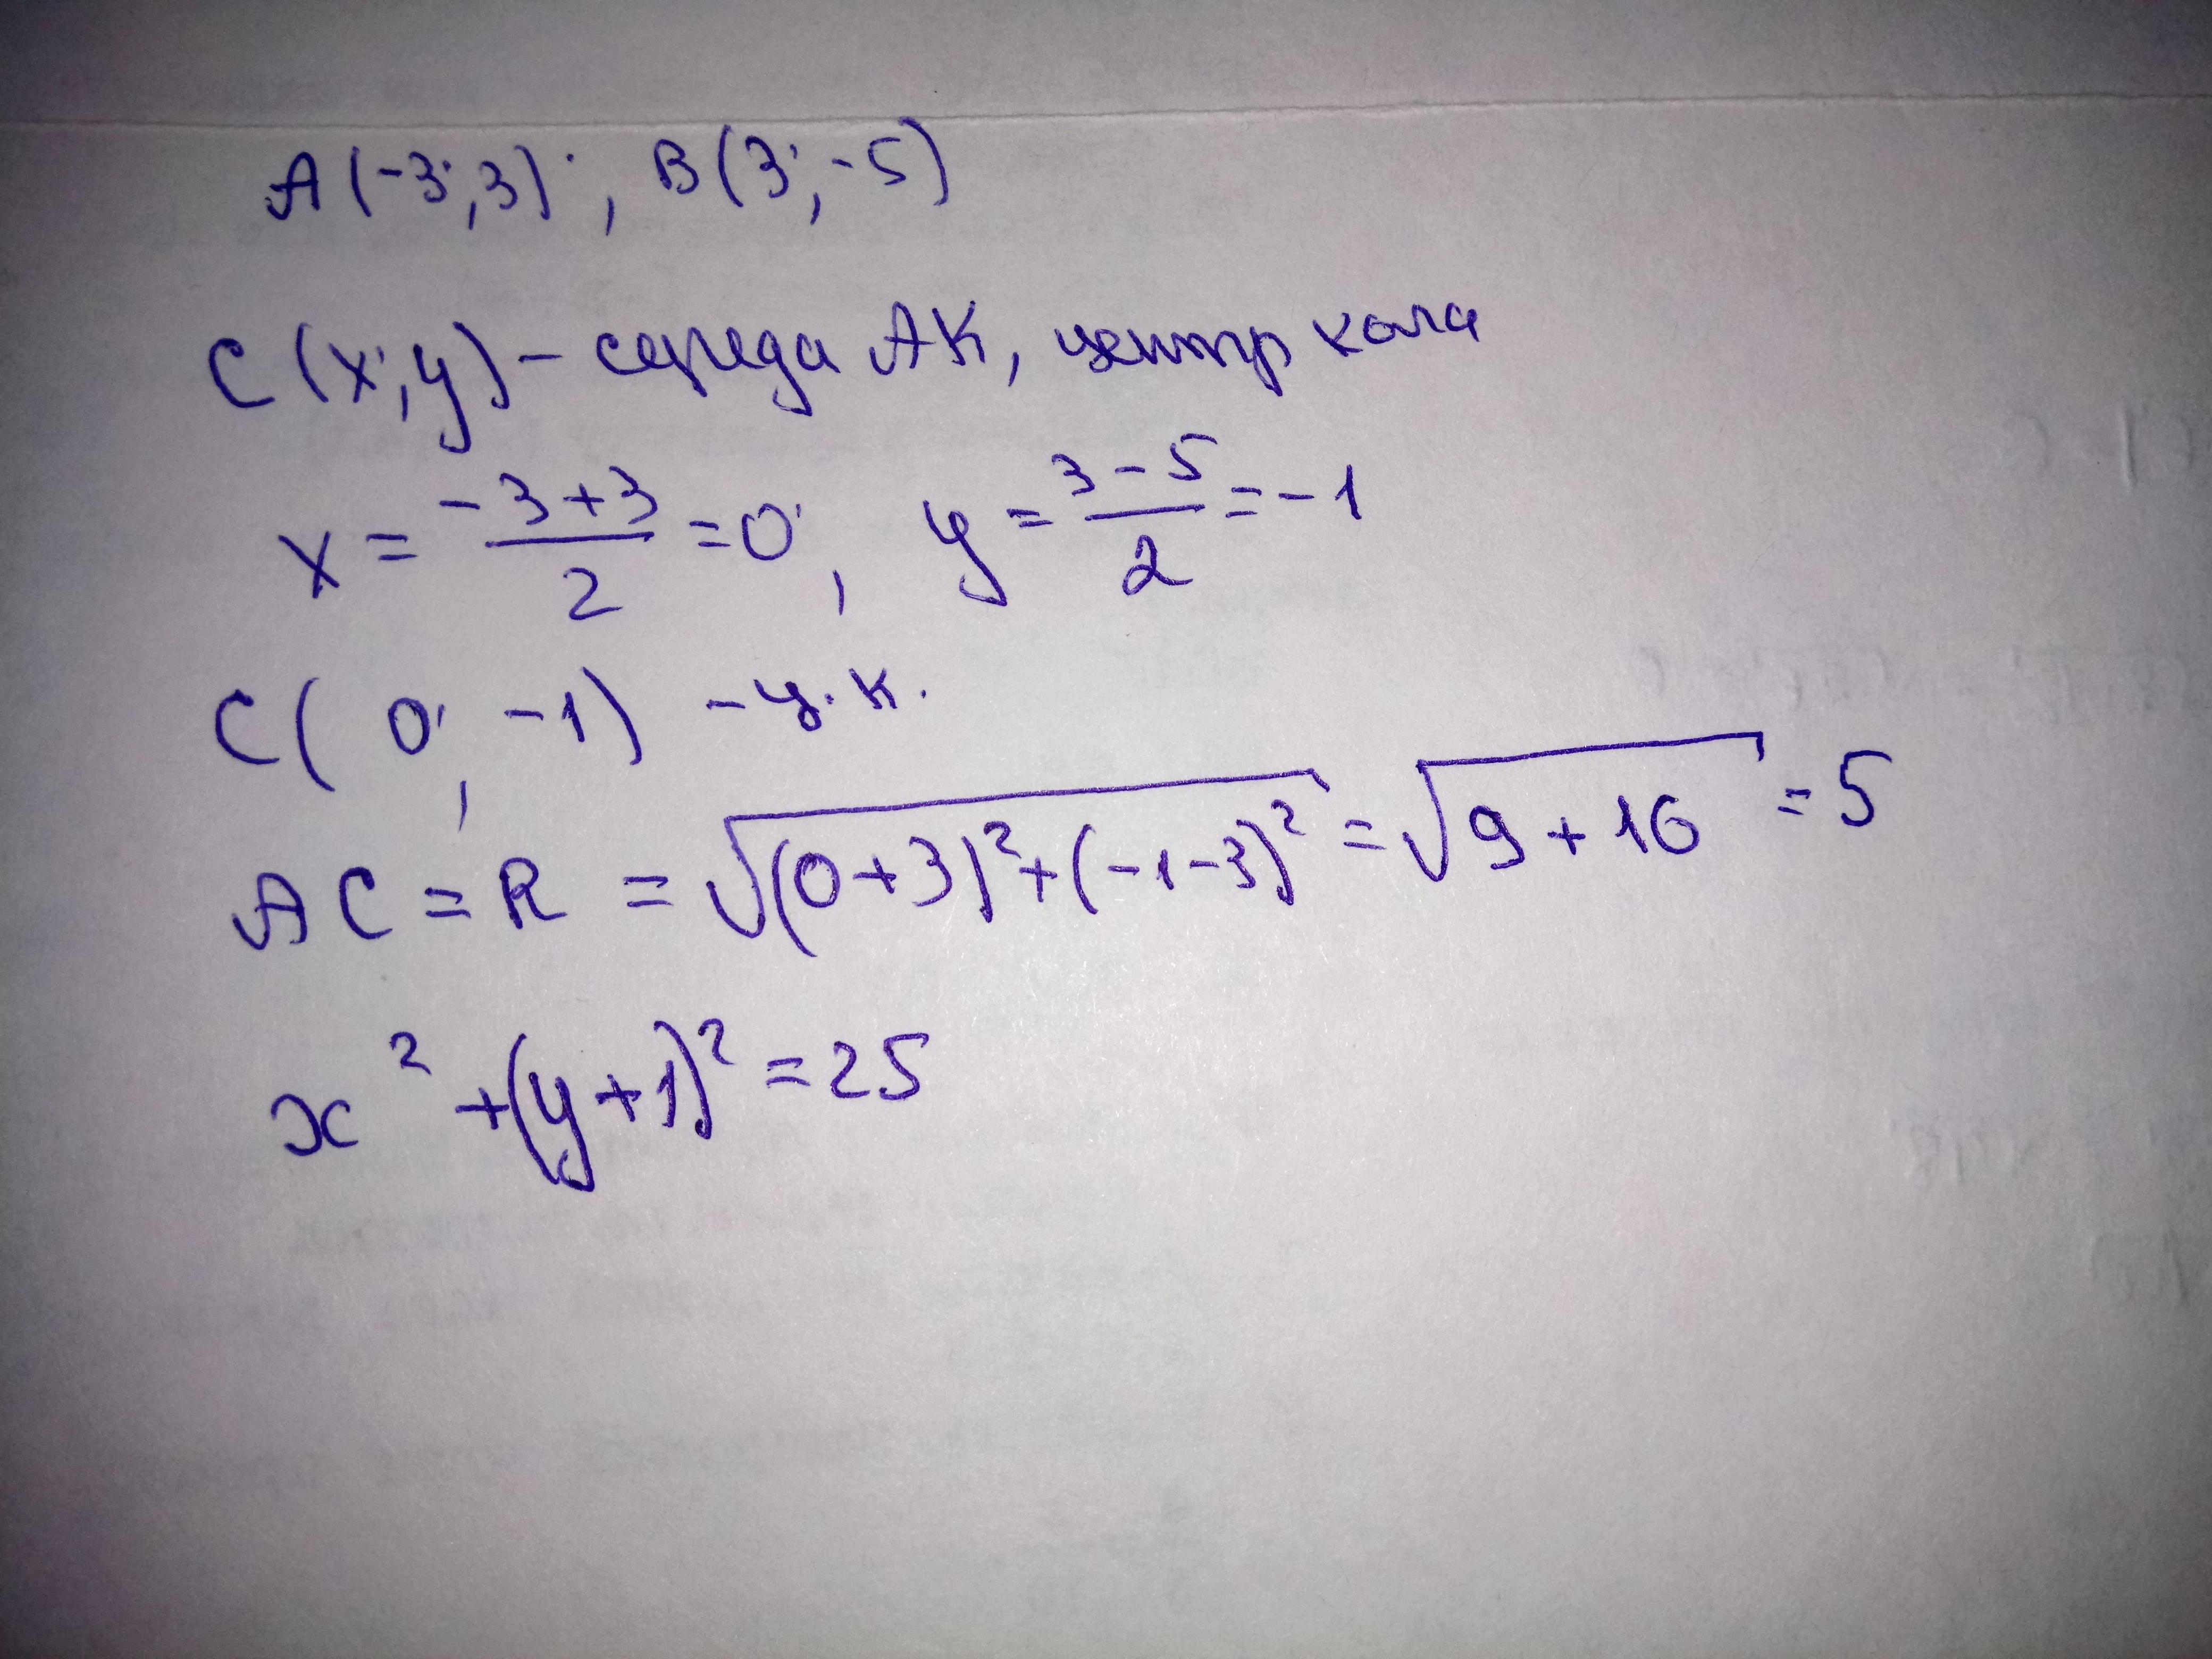 A(-3;3); B(3;-5)
C(x;y) - середа AK, центр кола
x = \frac{-3+3}{2} = 0; y = \frac{3-5}{2} = -1
C(0; -1) - ц.к.
AC = R = \sqrt{(0+3)^2+(-1-3)^2} = \sqrt{9+16} = 5
x^2+(y+1)^2=25